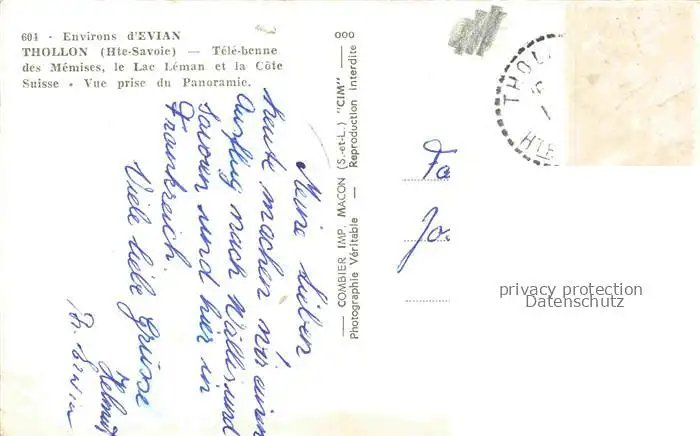 604 - Environs d'EVIAN
THOLLON (Hte-Savoie) — Télé-benne
des Mémises, le Lac Léman et la Côte
Suisse - Vue prise du Panoramic.
Meine Lieben
heute machen wir einen
Ausflug nach Wallis und
Savoien und hier in
Frankreich.
Viele liebe Grüsse
Helmut
COMBIER IMP. MACON (S.-et-L.) "CIM"
Photographie Véritable — Reproduction Interdite
THOLL
HTE
Fa
Jo
privacy protection
Datenschutz